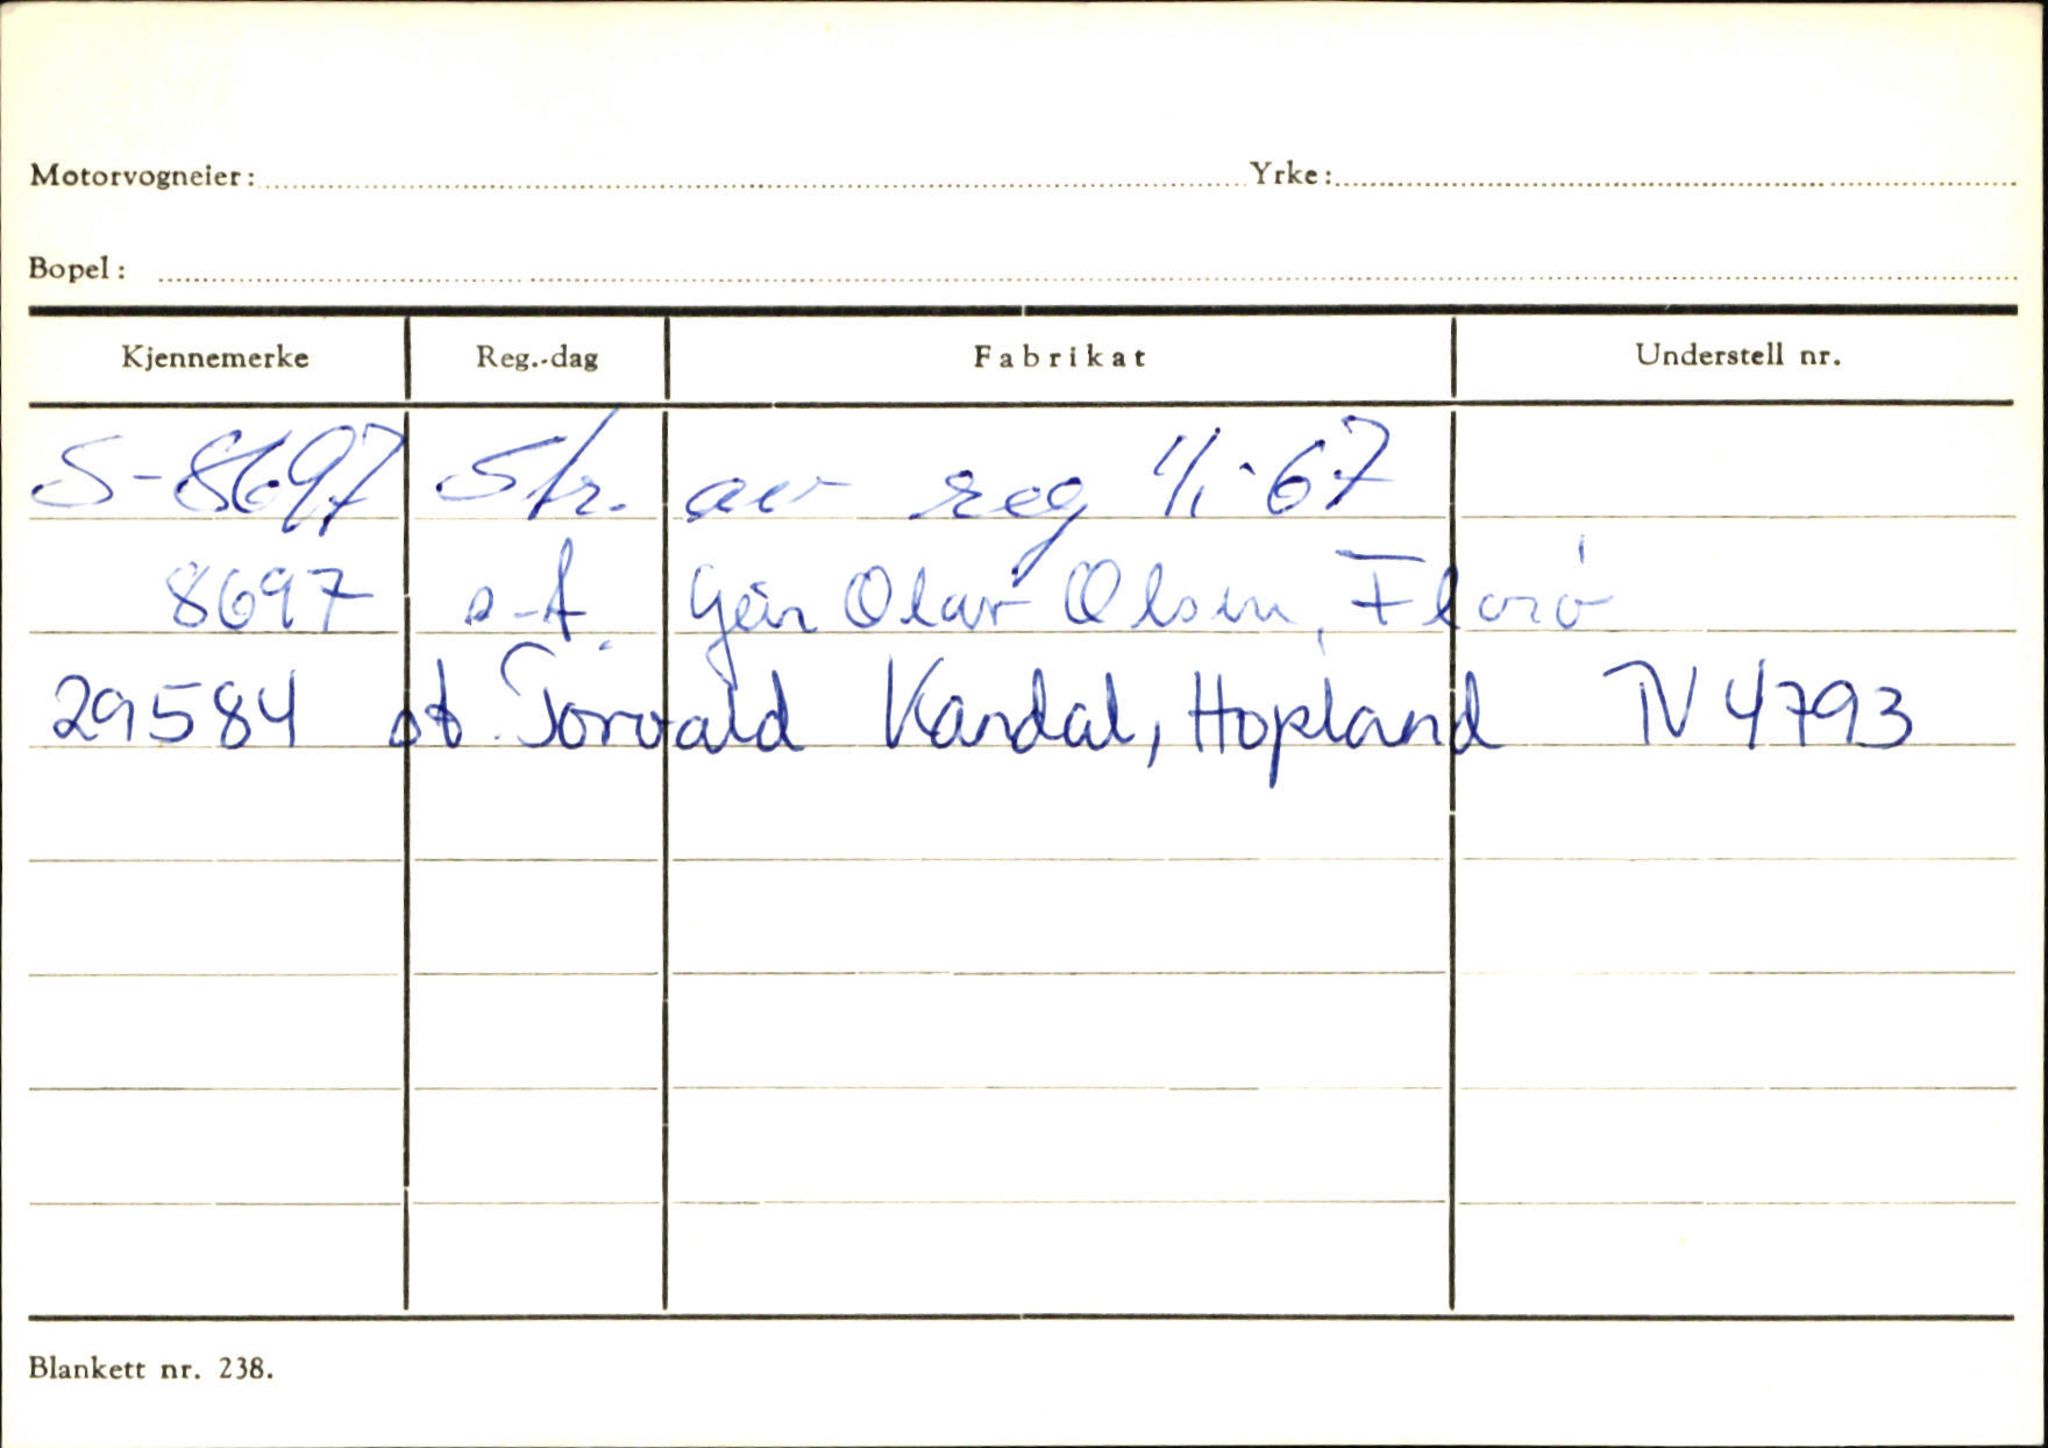 Motorvogneier: Yrke:
Bopel:
Kjennemerke Reg.-dag Fabrikat Understell nr.
S-8697 Str. av reg 1/1-67
8697 o-f. Geir Olav Olsen, Florø
29584 of. Torvald Kandal, Hopland TV 4793
Blankett nr. 238.